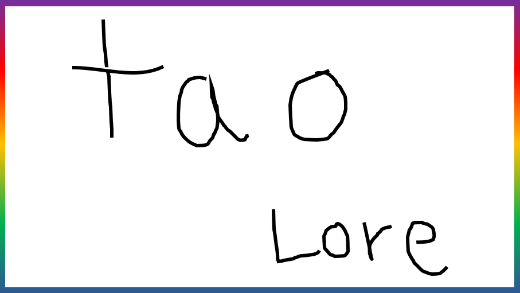 tao
Lore